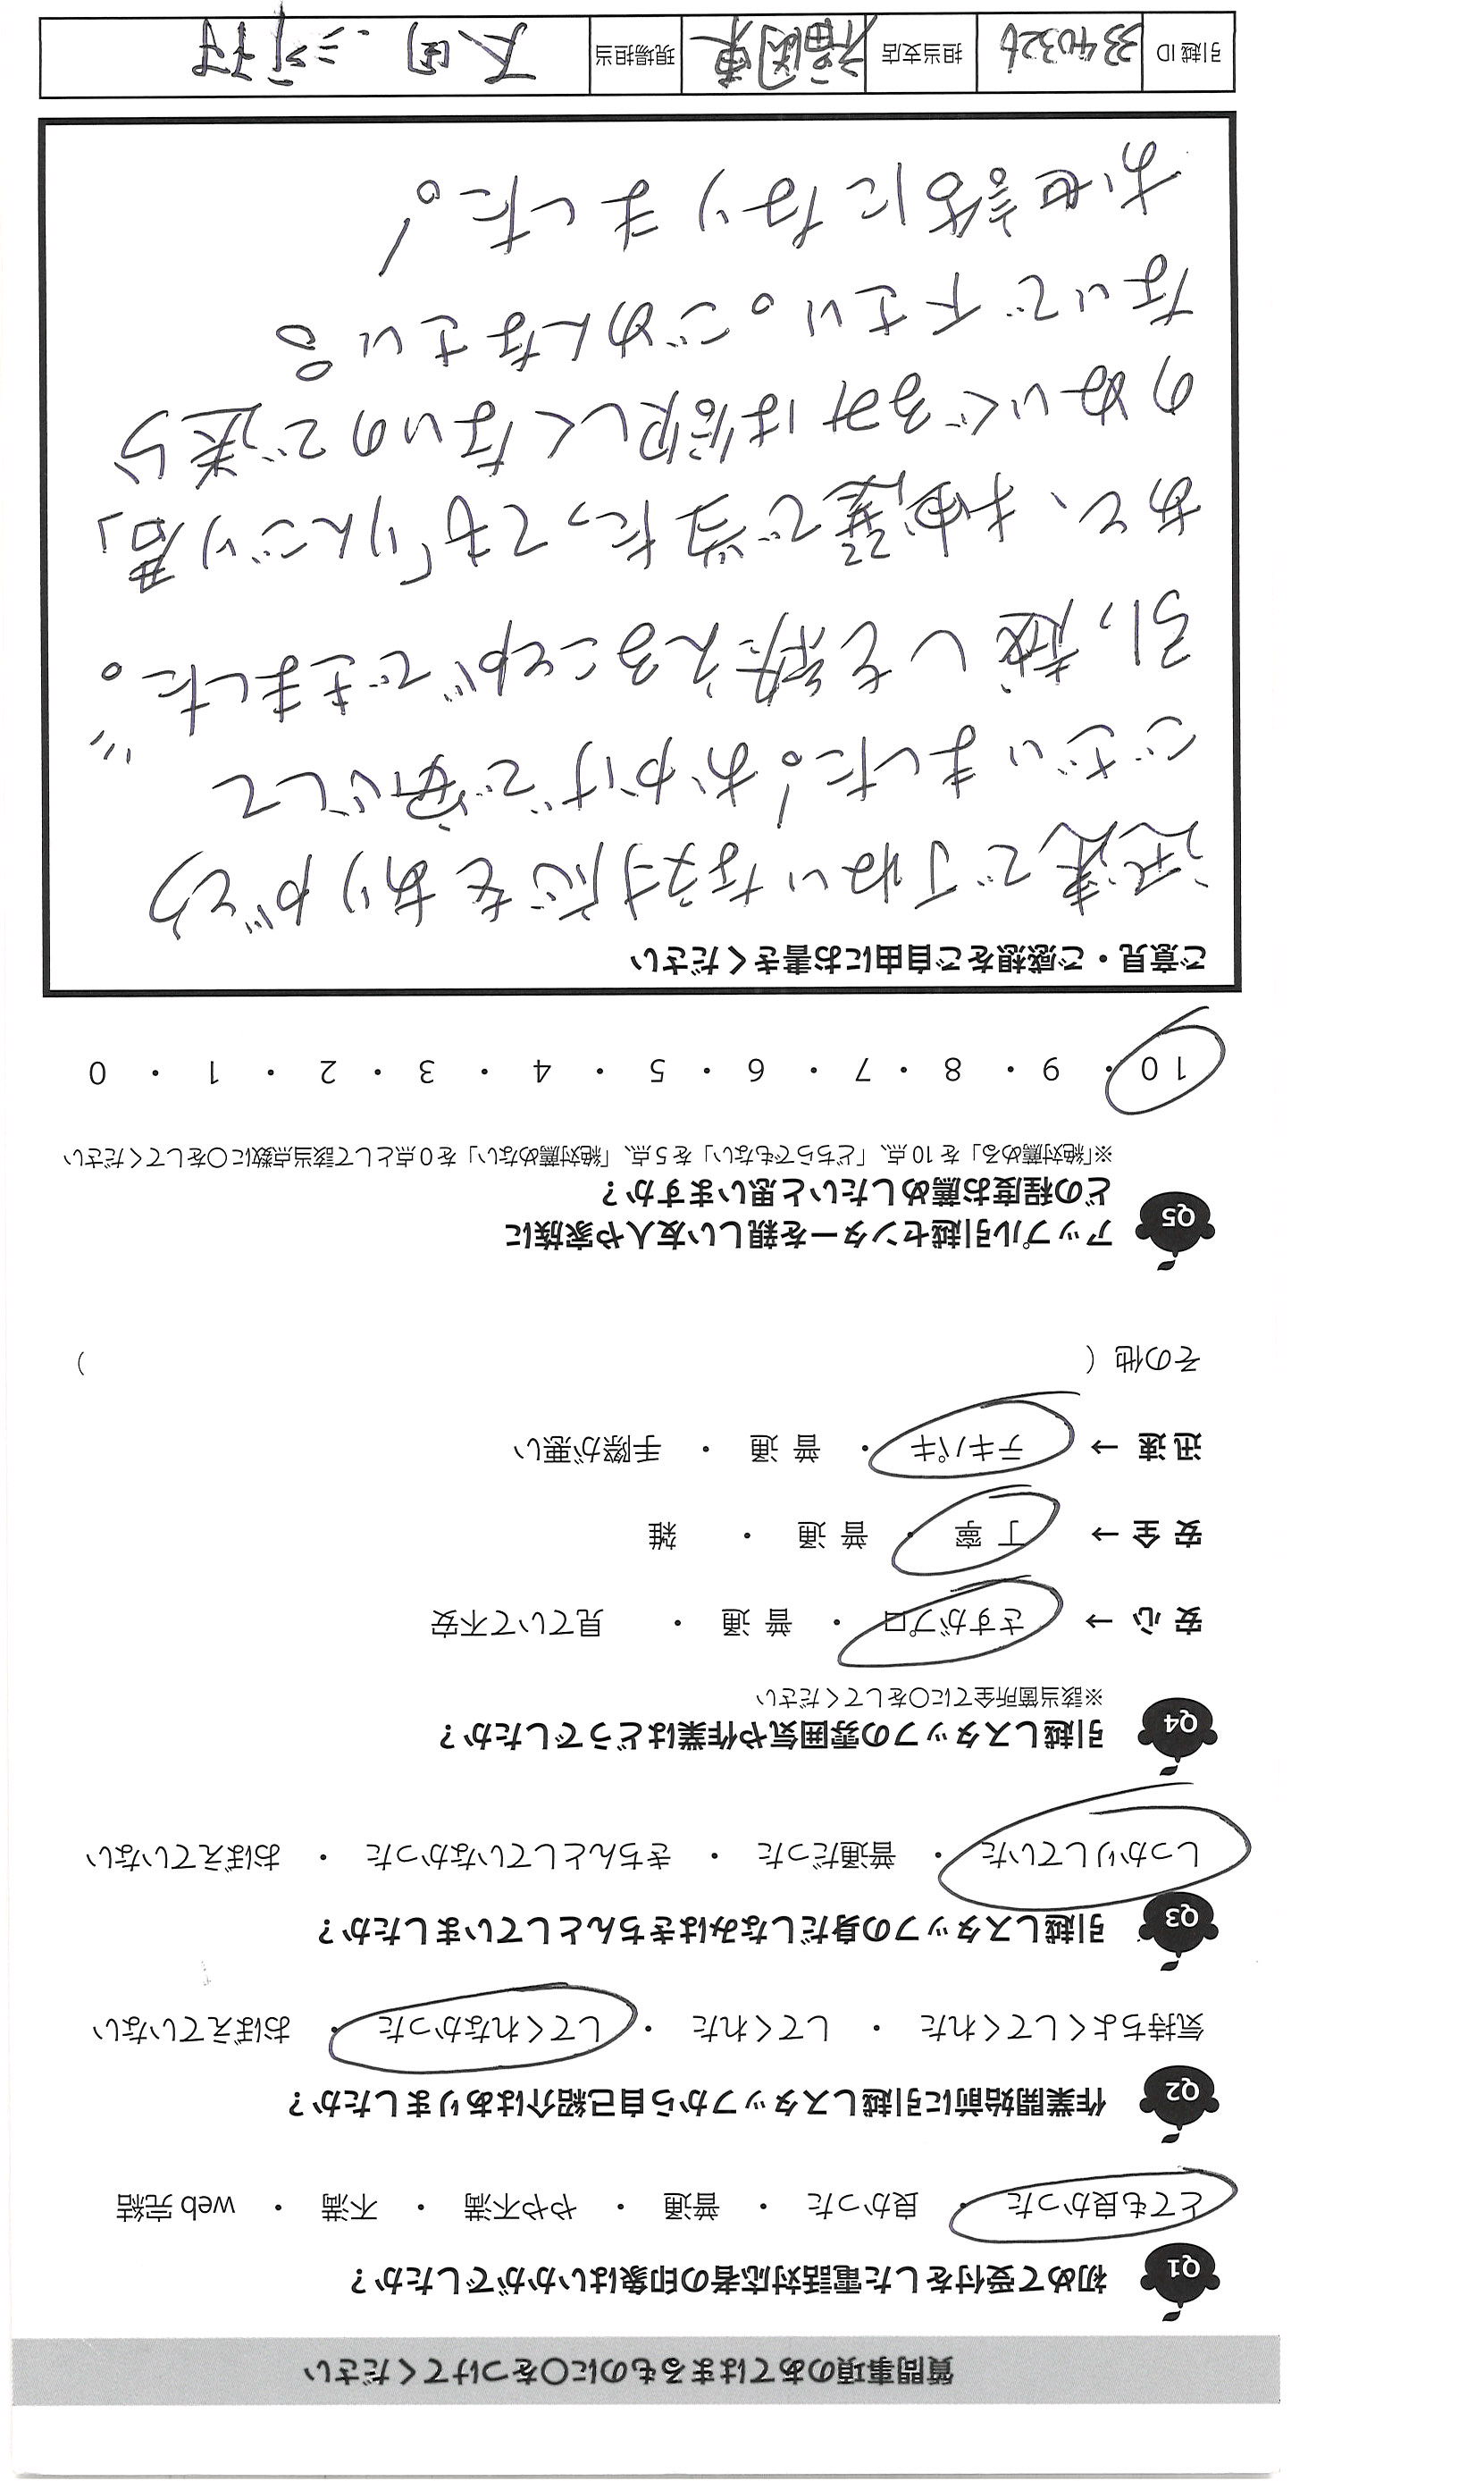 質問事項のあてはまるものに〇をつけてください
Q1 初めて受付をした電話対応者の印象はいかがでしたか？
とても良かった ・ 良かった ・ 普通 ・ やや不満 ・ 不満 ・ web 完結
Q2 作業開始前に引越しスタッフから自己紹介はありましたか？
気持ちよくしてくれた ・ してくれた ・ してくれなかった ・ おぼえていない
Q3 引越しスタッフの身だしなみはきちんとしていましたか？
しっかりしていた ・ 普通だった ・ きちんとしていなかった ・ おぼえていない
Q4 引越しスタッフの雰囲気や作業はどうでしたか？
※該当箇所全てに〇をしてください
安 心 → さすがプロ ・ 普 通 ・ 見ていて不安
安 全 → 丁 寧 ・ 普 通 ・ 雑
迅 速 → テキパキ ・ 普 通 ・ 手際が悪い
その他（ ）
Q5 アップル引越センターを親しい友人や家族に
どの程度お薦めしたいと思いますか？
※「絶対薦める」を 10 点、「どちらでもない」を 5 点、「絶対薦めない」を 0 点として該当点数に〇をしてください
10 ・ 9 ・ 8 ・ 7 ・ 6 ・ 5 ・ 4 ・ 3 ・ 2 ・ 1 ・ 0
ご意見・ご感想をご自由にお書きください
迅速で丁ねいな対応をありがとう
ございました！おかげで安心して
引っ越しを終えることができました。
あと、抽選で当たっても「りんごり君」
のぬいぐるみは欲しくないので送ら
ないで下さい。ごめんなさい。
お世話になりました！
引越 ID 3340326 担当支店 福岡東 現場担当 大園・三行村